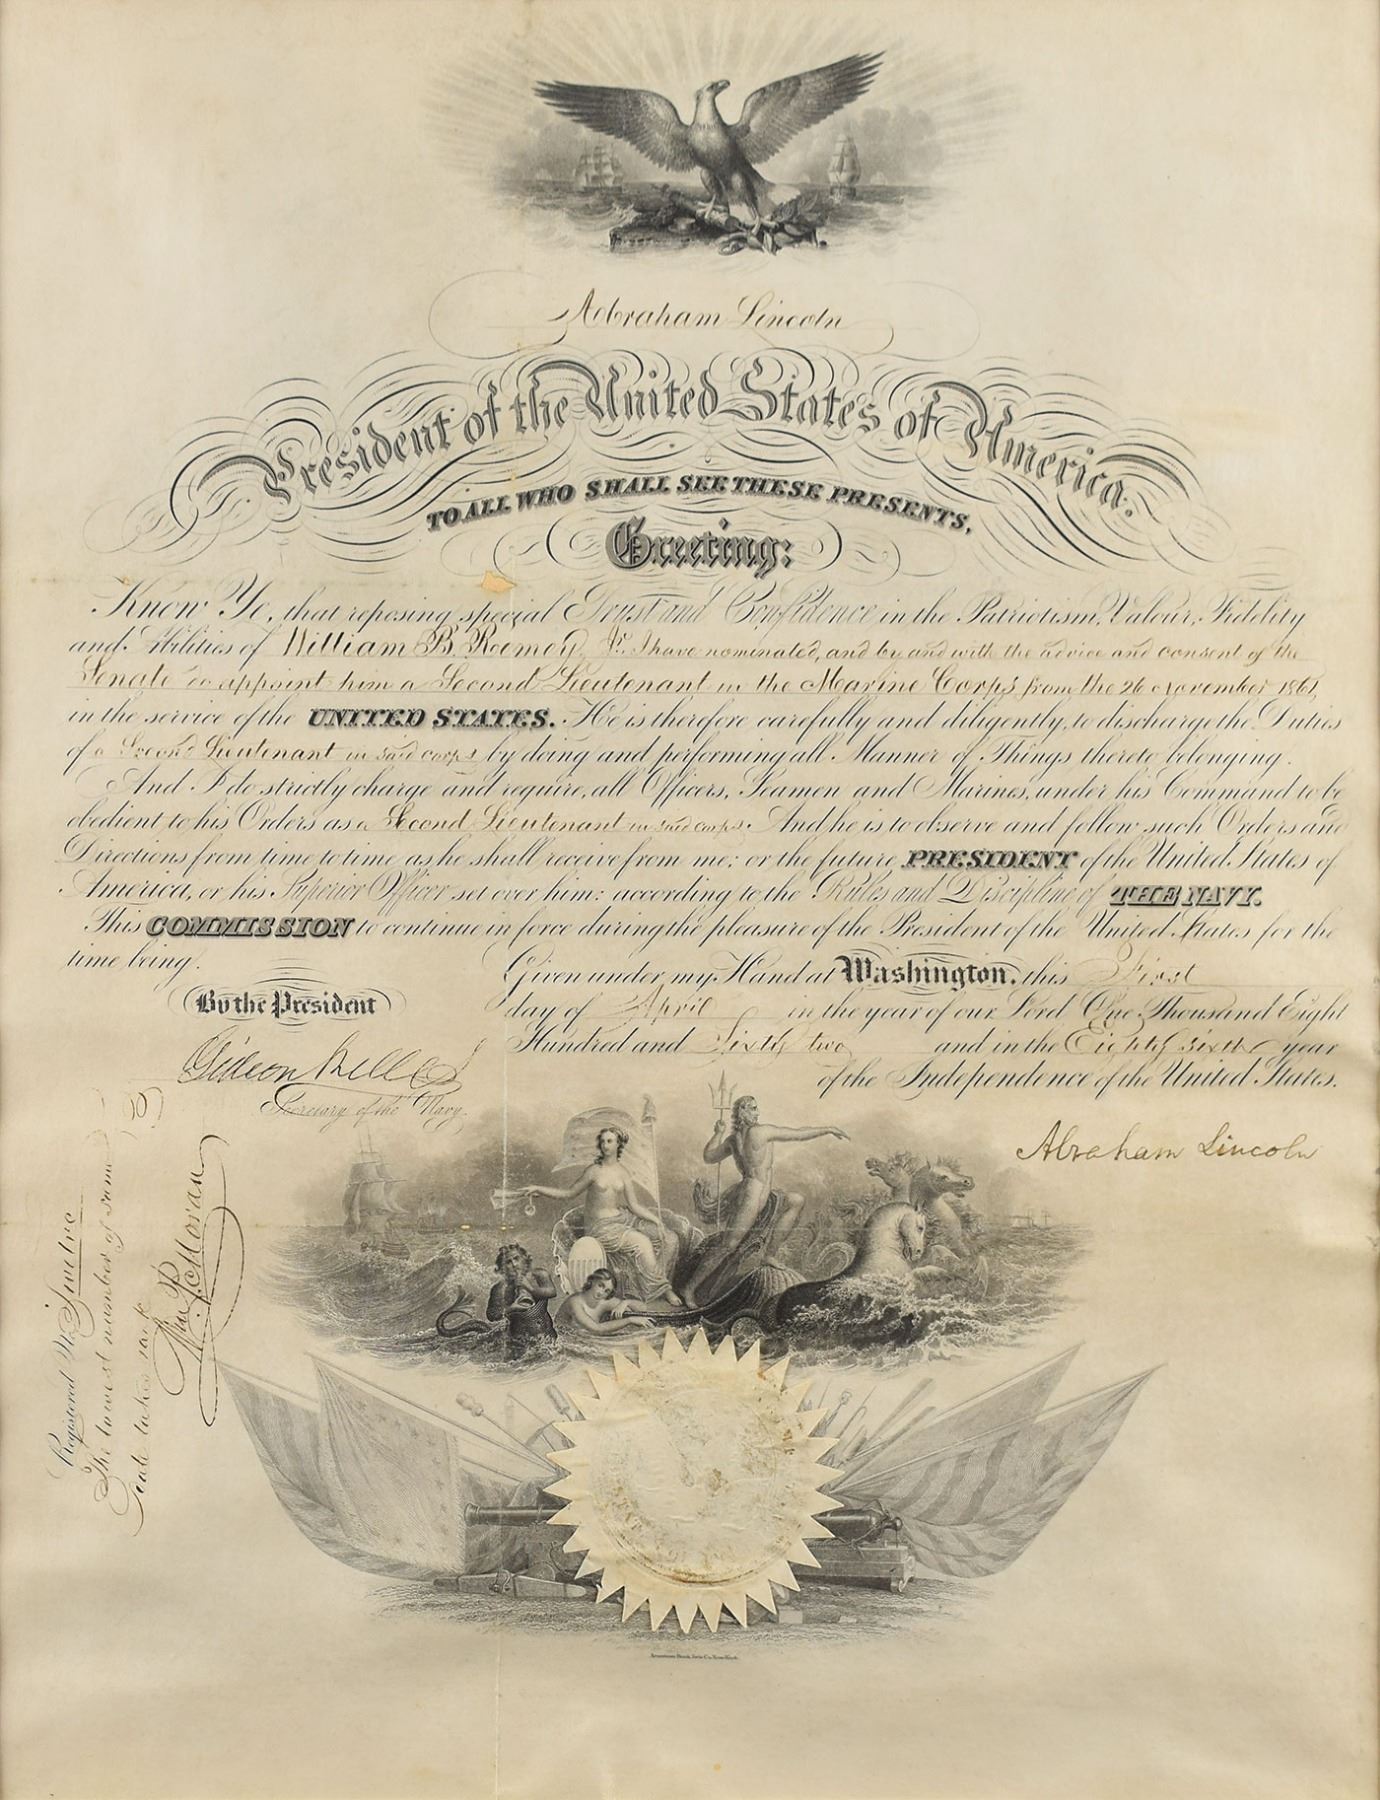 Abraham Lincoln
President of the United States of America.
TO ALL WHO SHALL SEE THESE PRESENTS,
Greeting:
Know Ye, that reposing special Trust and Confidence in the Patriotism, Valour, Fidelity
and Abilities of William B. Remey, Jr. I have nominated, and by and with the advice and consent of the
Senate do appoint him a Second Lieutenant in the Marine Corps, from the 26 November 1861,
in the service of the UNITED STATES. He is therefore carefully and diligently, to discharge the Duties
of a Second Lieutenant in said corps by doing and performing all Manner of Things thereto belonging.
And I do strictly charge and require, all Officers, Seamen and Marines, under his Command to be
obedient to his Orders as a Second Lieutenant in said corps. And he is to observe and follow such Orders and
Directions from time to time as he shall receive from me; or the future PRESIDENT of the United States of
America, or his Superior Officer set over him: according to the Rules and Discipline of THE NAVY.
This COMMISSION to continue in force during the pleasure of the President of the United States for the
time being.
Given under my Hand at Washington, this First
day of April in the year of our Lord One Thousand Eight
Hundred and Sixty two and in the Eighty sixth year
of the Independence of the United States.
By the President
Gideon Welles
Secretary of the Navy.
Abraham Lincoln
Registered No.
The lowest number of same
date takes rank
American Bank Note Co. New York